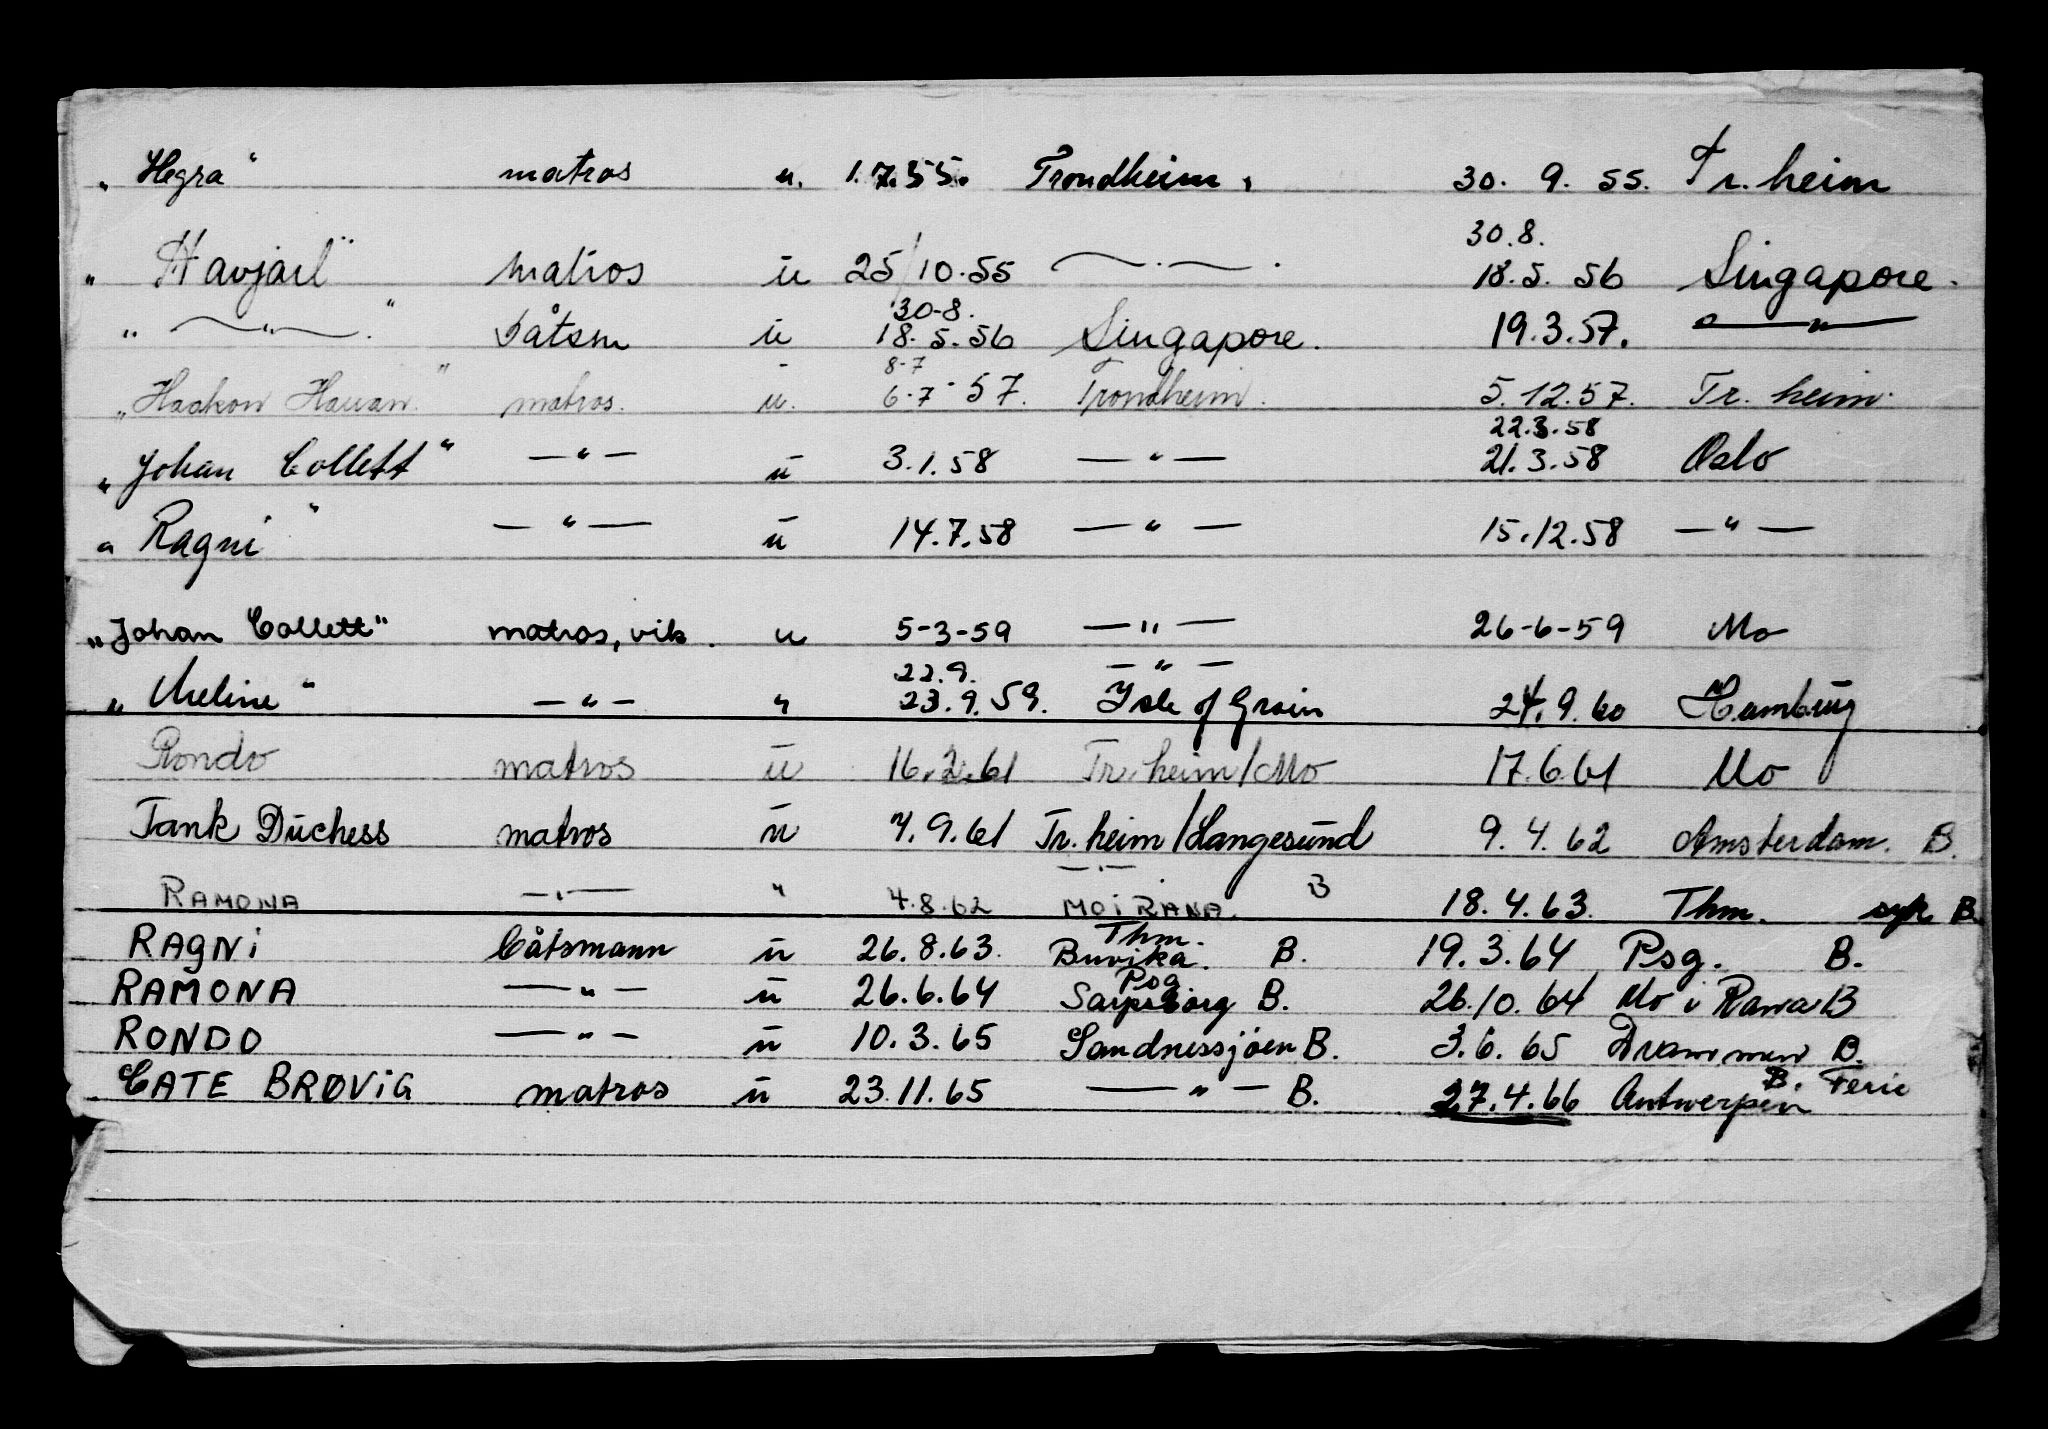 „ Hegra" matros u. 1.7.55. Trondheim, 30. 9. 55. Tr.heim
30.8.
„ Havjarl" matros u 25/10.55 — · — . 18.5. 56 Singapore.
30-8.
„ — " — ." båtsm u 18.5.56 Singapore. 19.3.57. — " —
8-7
„Haakon Hauan." matros. u. 6.7-57. Trondheim. 5.12.57. Tr. heim.
22.3.58
„Johan Collett" — " — u 3.1.58 — " — 21.3.58 Oslo
„ Ragni" — " — u 14.7.58 — " — 15.12.58 — " —
„Johan Collett" matros, vik. u 5-3-59 — " — 26-6-59 Mo
22.9. — " —
„ Meline" — " — " 23.9.59. Isle of Grain 24.9.60 Hamburg
Rondo matros u 16.2.61 Tr.heim/Mo 17.6.61 Mo
Tank Duchess matros u 7.9.61 Tr.heim/Langesund 9.4.62 Amsterdam. B.
— " —
RAMONA — " — " 4.8.62 MO I RANA. B 18.4.63. Thm. syk B.
Thm.
RAGNi Båtsmann u 26.8.63. Buvika. B. 19.3.64 Psg. B.
Psg
RAMONA — " — u 26.6.64 Sarpsborg B. 26.10.64 Mo i Rana B
RONDO — " — u 10.3.65 Sandnessjøen B. 3.6.65 Drammen B.
B. Ferie
CATE BRØViG matros u 23.11.65 — " — B. 27.4.66 Antwerpen